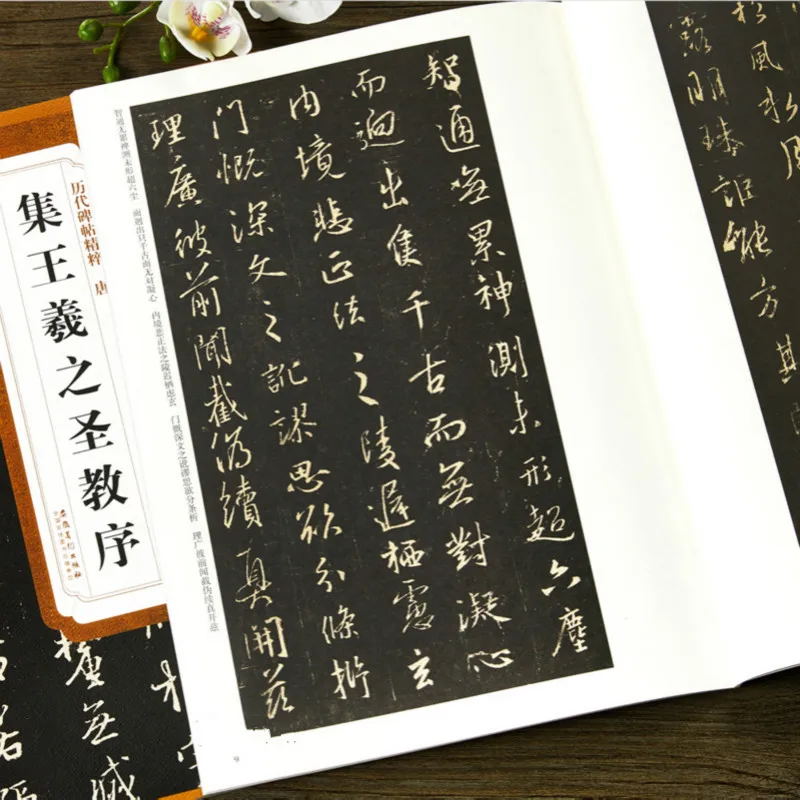 历代碑帖精粹 唐
集王羲之圣教序
安徽美术出版社
智通無累神測未形超六塵
而迥出隻千古而無對凝心
内境悲正法之陵遲栖慮玄
门慨深文之訛謬思欲分條析
理廣彼前聞截偽續真開茲
智通无累神测未形超六尘 而迥出只千古而无对凝心 内境悲正法之陵迟栖虑玄 门慨深文之讹谬思欲分条析 理广彼前闻截伪续真开兹
9
松風水月
露明珠詎能方其